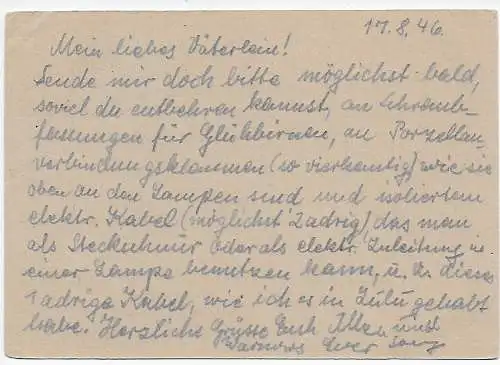 17.8.46.
Mein liebes Väterlein!
Sende mir doch bitte möglichst bald,
soviel du entbehren kannst, an Schraub-
fassungen für Glühbirnen, an Porzellan-
verbindungsklammen (so vierkantig) wie sie
oben an den Lampen sind und isoliertem
elektr. Kabel (möglichst 2adrig) das man
als Steckschnur oder als elektr. Zuleitung in
einer Lampe benutzen kann, u. z. dieses
1adrige Kabel, wie ich es in gehabt
habe. Herzliche Grüsse Euch Allen und
Euer